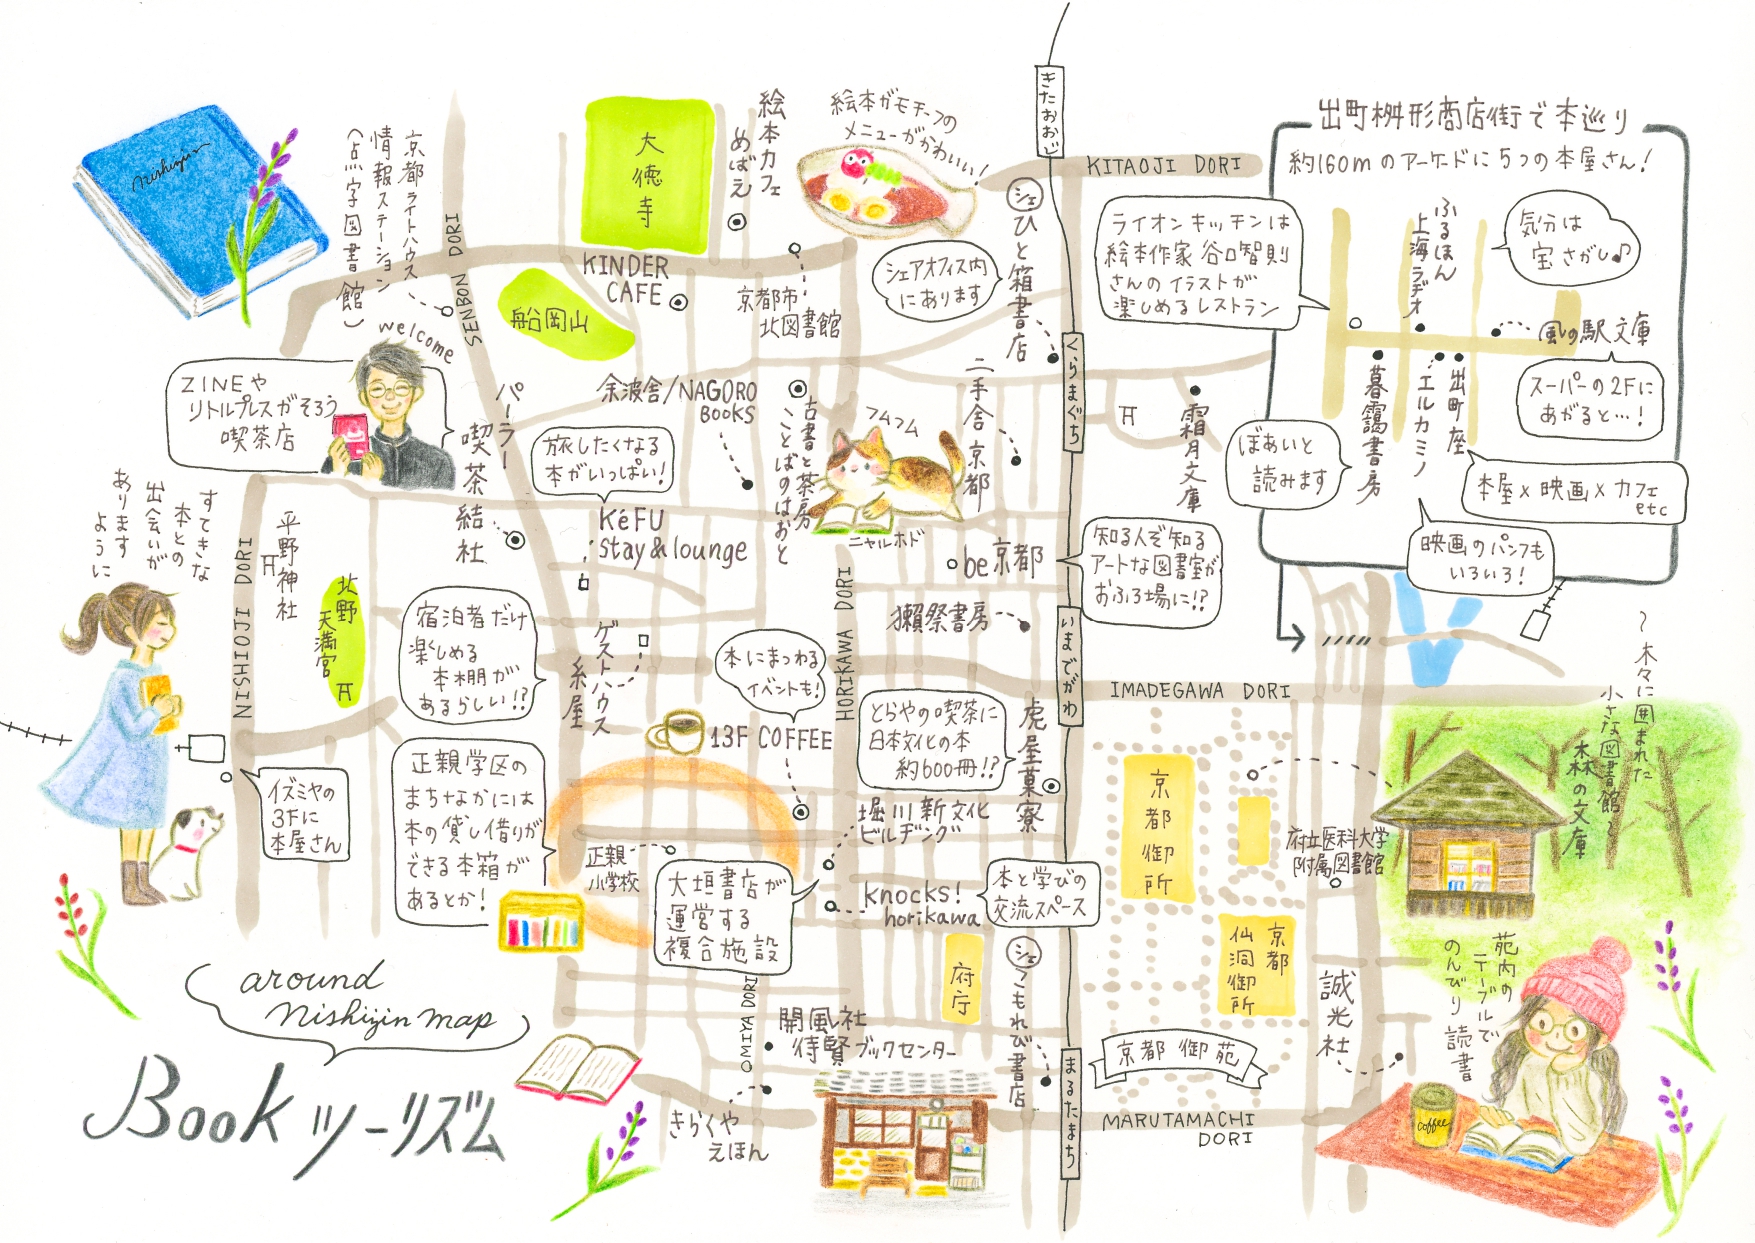 nishizin
京都ライトハウス
情報ステーション
(点字図書館)
SENBON DORI
大徳寺
絵本カフェ
めばえ
絵本がモチーフの
メニューがかわいい!
きたおおじ
KITAOJI DORI
出町桝形商店街で本巡り
約160mのアーケードに5つの本屋さん!
ライオンキッチンは
絵本作家 谷口智則
さんのイラストが
楽しめるレストラン
ふるほん
上海ラヂオ
気分は
宝さがし♪
風の駅文庫
スーパーの2Fに
あがると…!
暮靄書房
エルカミノ
出町座
ぼあいと
読みます
本屋×映画×カフェ
etc
映画のパンフも
いろいろ!
シェ
ひと箱書店
シェアオフィス内
にあります
KINDER
CAFE
船岡山
京都市
北図書館
welcome
ZINEや
リトルプレスがそろう
喫茶店
パーラー
喫茶
結社
余波舎/NAGORO
BOOKS
古書と茶房
ことばのはおと
フムフム
ニャルホド
二手舎 京都
くらまぐち
霜月文庫
旅したくなる
本がいっぱい!
KéFU
stay&lounge
be京都
知る人ぞ知る
アートな図書室が
おふろ場に!?
獺祭書房
いまでがわ
IMADEGAWA DORI
すてきな
本との
出会いが
あります
ように
NISHIOJI DORI
平野神社
北野
天満宮
宿泊者だけ
楽しめる
本棚が
あるらしい!?
ゲストハウス
糸屋
本にまつわる
イベントも!
HORIKAWA DORI
13F COFFEE
とらやの喫茶に
日本文化の本
約600冊!?
虎屋菓寮
堀川新文化
ビルヂング
正親学区の
まちなかには
本の貸し借りが
できる本箱が
あるとか!
イズミヤの
3Fに
本屋さん
正親
小学校
大垣書店が
運営する
複合施設
knocks!
horikawa
本と学びの
交流スペース
京都御所
府立医科大学
附属図書館
〜木々に囲まれた
小さな図書館〜
森の文庫
京都
仙洞御所
府庁
シェ
こもれび書店
OMIYA DORI
開風社
待賢ブックセンター
きらくや
えほん
まるたまち
京都御苑
MARUTAMACHI
DORI
誠光社
苑内の
テーブルで
のんびり 読書
coffee
around
Nishizin map
Bookツーリズム